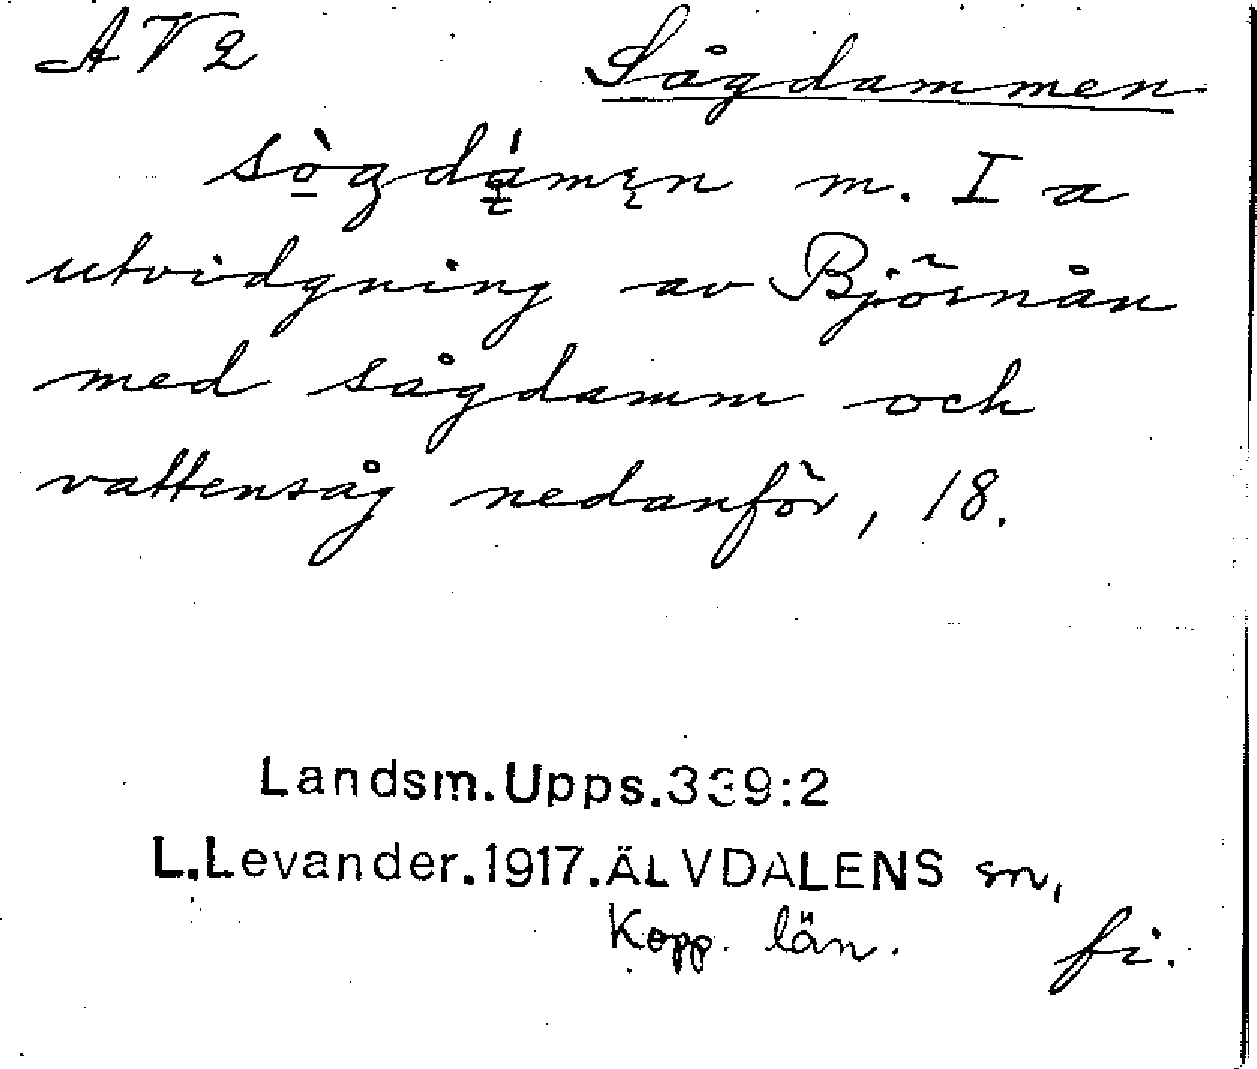 AV2 Sågdammen
m. I a
utvidgning av Björnån
med sågdamm och
vattensåg nedanför, 18.
Landsm.Upps.339:2
L.Levander.1917.ÄLVDALENS sn,
Kopp. län. fi.